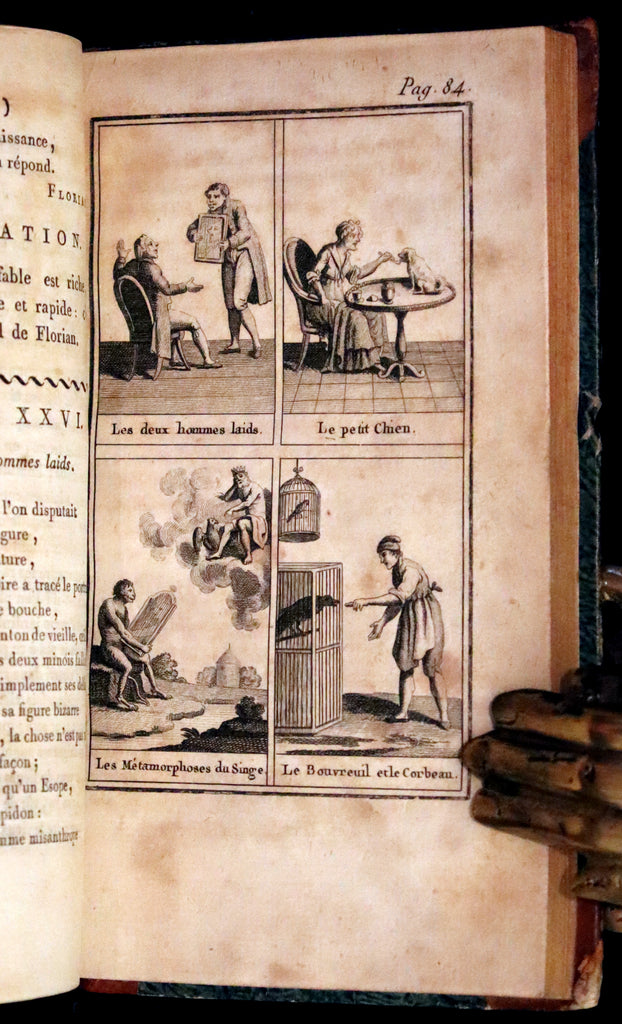 )
issance,
répond.
FLORIA
ATION.
fable est riche
e et rapide :
l de Florian.
XXVI.
ommes laids.
l'on disputait
gure,
ture,
ire a tracé le
e bouche,
nton de vieille,
s deux minois
implement ses
sa figure bizarre
, la chose n'est pas
façon ;
qu'un Esope,
pidon :
mme misanthrope
Pag. 84.
Les deux hommes laids.
Le petit Chien.
Les Métamorphoses du Singe.
Le Bouvreuil et le Corbeau.